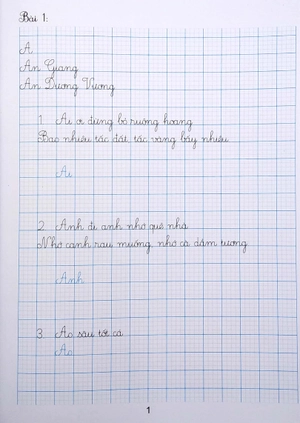 Bài 1:
A
An Giang
An Dương Vương
1. Ai ơi đừng bỏ ruộng hoang
Bao nhiêu tấc đất, tấc vàng bấy nhiêu.
Ai
2. Anh đi anh nhớ quê nhà
Nhớ canh rau muống, nhớ cà dầm tương.
Anh
3. Ao sâu tốt cá.
Ao
1